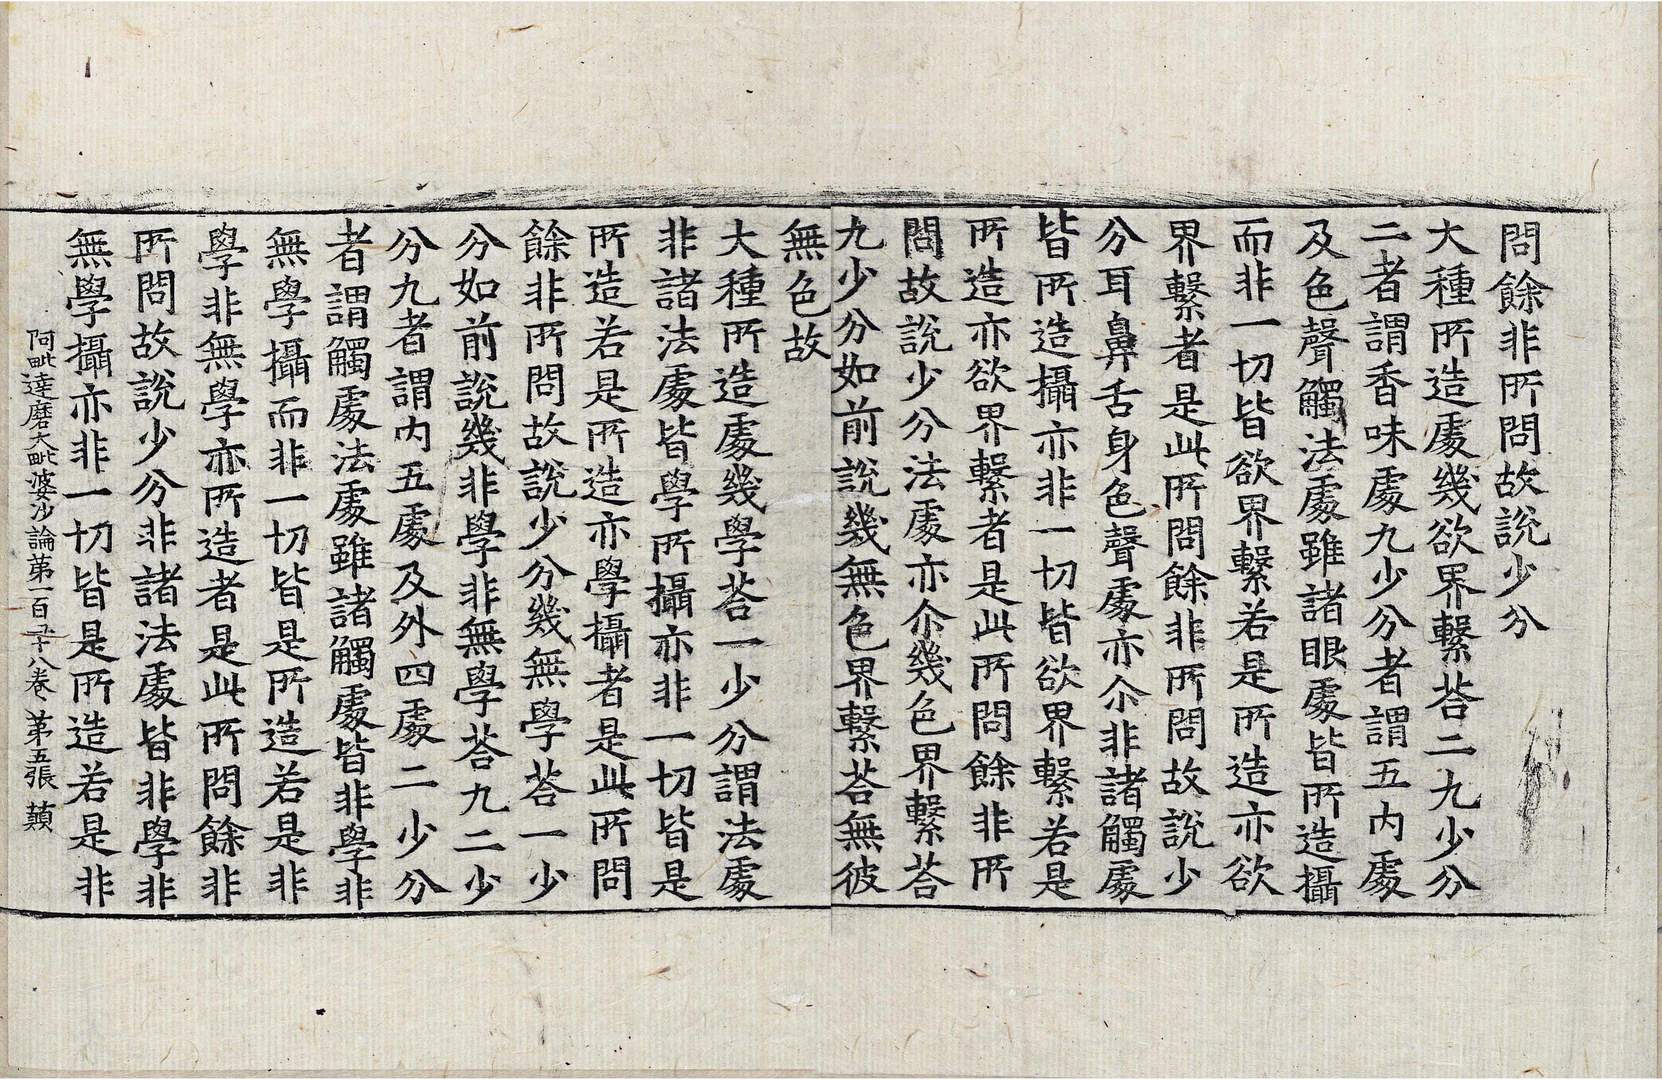 問餘非所問故說少分
大種所造處幾欲界繫荅二九少分
二者謂香味處九少分者謂五內處
及色聲觸法處雖諸眼處皆所造攝
而非一切皆欲界繫若是所造亦欲
界繫者是此所問餘非所問故說少
分耳鼻舌身色聲處亦尒非諸觸處
皆所造攝亦非一切皆欲界繫若是
所造亦欲界繫者是此所問餘非所
問故說少分法處亦尒幾色界繫荅
九少分如前說幾無色界繫荅無彼
無色故
大種所造處幾學荅一少分謂法處
非諸法處皆學所攝亦非一切皆是
所造若是所造亦學攝者是此所問
餘非所問故說少分幾無學荅一少
分如前說幾非學非無學荅九二少
分九者謂內五處及外四處二少分
者謂觸處法處雖諸觸處皆非學非
無學攝而非一切皆是所造若是非
學非無學亦所造者是此所問餘非
所問故說少分非諸法處皆非學非
無學攝亦非一切皆是所造若是非
阿毗達磨大毗婆沙論第一百 十八卷 第五張 顛